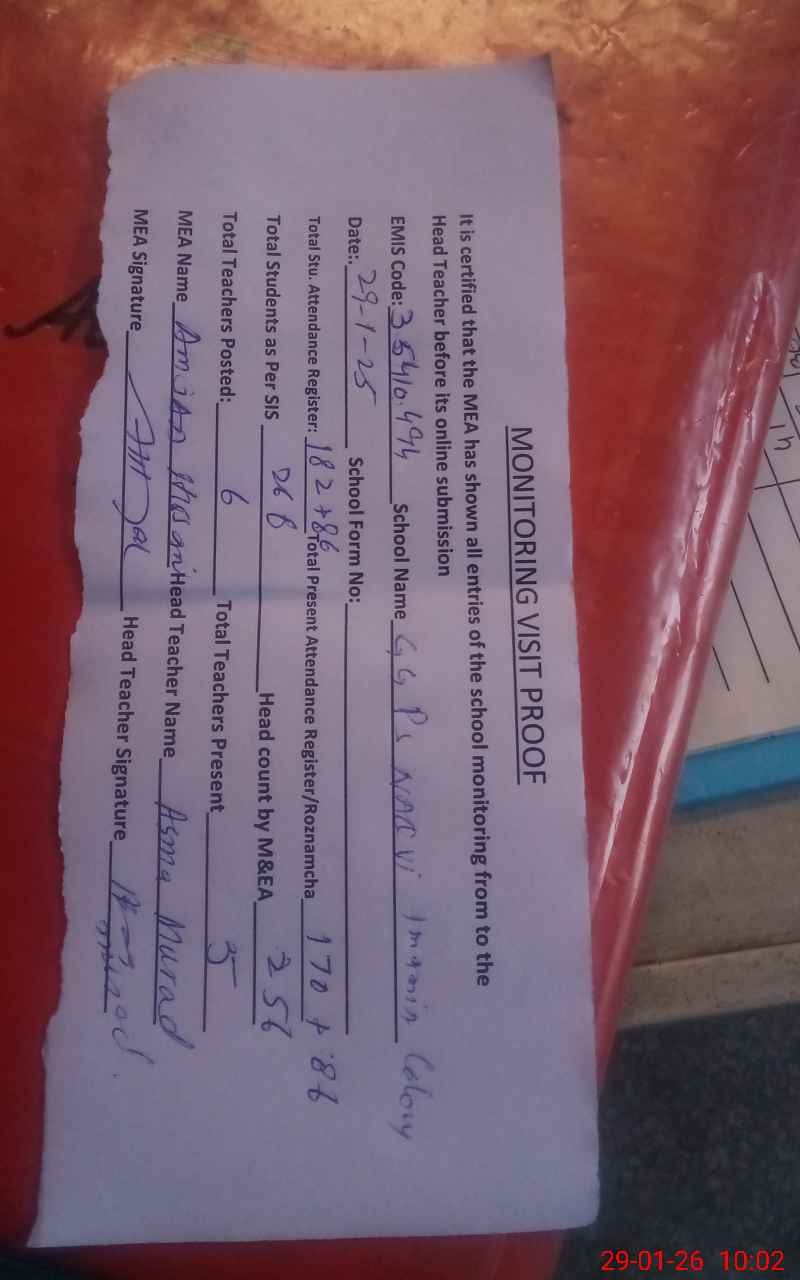 MONITORING VISIT PROOF
It is certified that the MEA has shown all entries of the school monitoring from to the
Head Teacher before its online submission
EMIS Code: 35410494 School Name G G P S NAQVI Imamin Colony
Date:. 29-1-25 School Form No:
Total Stu. Attendance Register: 182+86 Total Present Attendance Register/Roznamcha 170 + 86
Total Students as Per SIS 268 Head count by M&EA 256
Total Teachers Posted: 6 Total Teachers Present 5
MEA Name Head Teacher Name Asma Murad
MEA Signature Head Teacher Signature
29-01-26 10:02